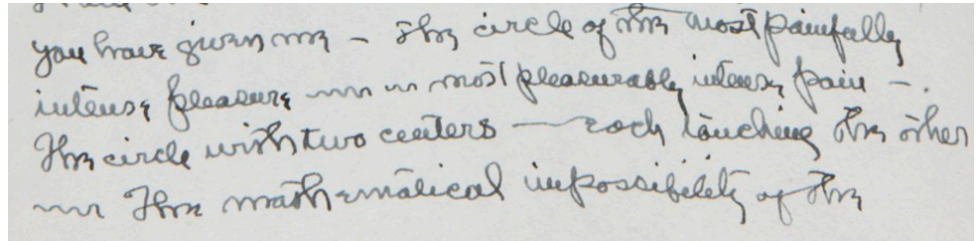 you have given me – The circle of the most painfully
intense pleasure – most pleasurably intense pain –.
The circle with two centers — each touching the other
in the mathematical impossibility of the